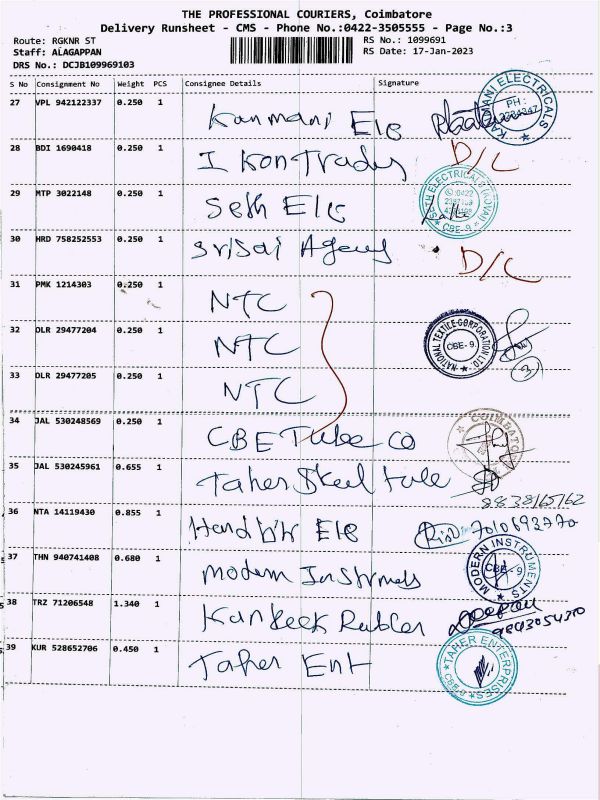 THE PROFESSIONAL COURIERS, Coimbatore
Delivery Runsheet - CMS - Phone No.:0422-3505555 - Page No.:3
Route: RGKNR ST
Staff: ALAGAPPAN
DRS No.: DCJB109969103
RS No.: 1099691
RS Date: 17-Jan-2023
S No Consignment No Weight PCS Consignee Details Signature
27 VPL 942122337 0.250 1 Kanmani Ele
KANMANI ELECTRICALS PH :
28 BDI 1690418 0.250 1 I Kon Trades D/C
29 MTP 3022148 0.250 1 Seth Ele
SETH ELECTRICALS 0422 CBE-9
30 HRD 758252553 0.250 1 Srisai Agency D/C
31 PMK 1214303 0.250 1 NTC
32 DLR 29477204 0.250 1 NTC
NATIONAL TEXTILE CORPORATION LTD. CBE-9. 3
33 DLR 29477205 0.250 1 NTC
34 JAL 530248569 0.250 1 CBE Tube Co
COIMBATO
35 JAL 530245961 0.655 1 Taher Steel
8838165162
36 NTA 14119430 0.855 1 Ele
7010692770
37 THN 940741408 0.680 1 Modern Instruments
MODERN INSTRUMENTS CBE-9
38 TRZ 71206548 1.340 1 Rubber
9843054310
39 KUR 528652706 0.450 1 Taher Ent
TAHER ENTERPRISES CBE-9